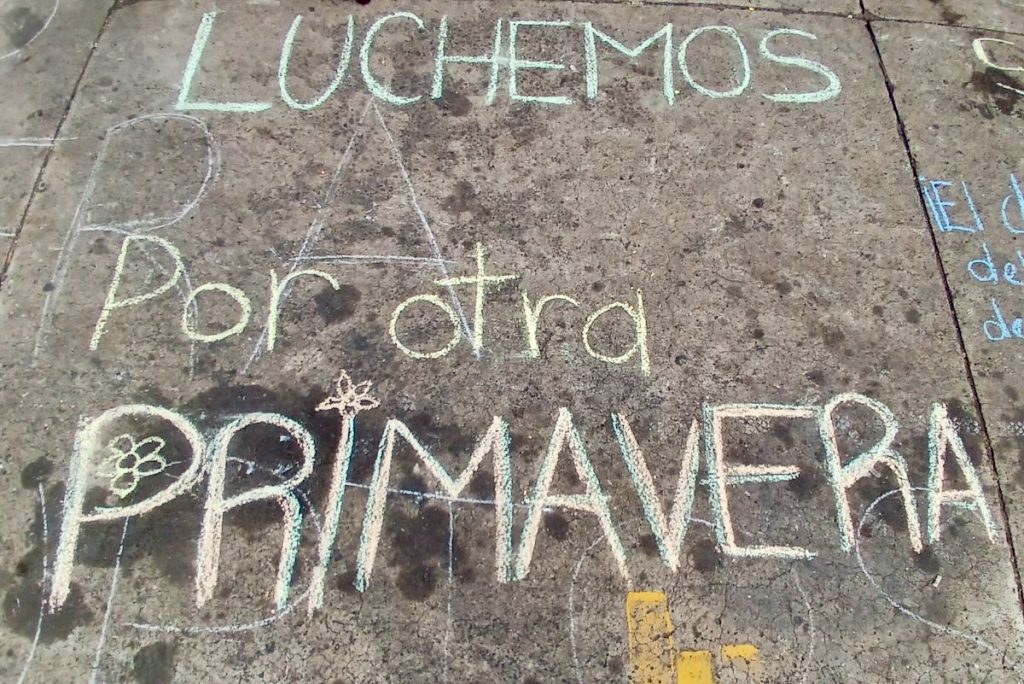 LUCHEMOS
Por otra
PRIMAVERA
El